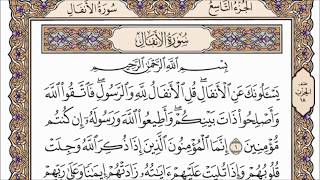 الجزء التاسع
سورة الأنفال
سورة الأنفال
بسم الله الرحمن الرحيم
يسـٔلونك عن الأنفال قل الأنفال لله والرسول فاتقوا الله
وأصلحوا ذات بينكم وأطيعوا الله ورسوله إن كنتم
مؤمنين ١ إنما المؤمنون الذين إذا ذكر الله وجلت
قلوبهم وإذا تليت عليهم ءايته زادتهم إيمنا وعلى ربهم
الحزب
١٨